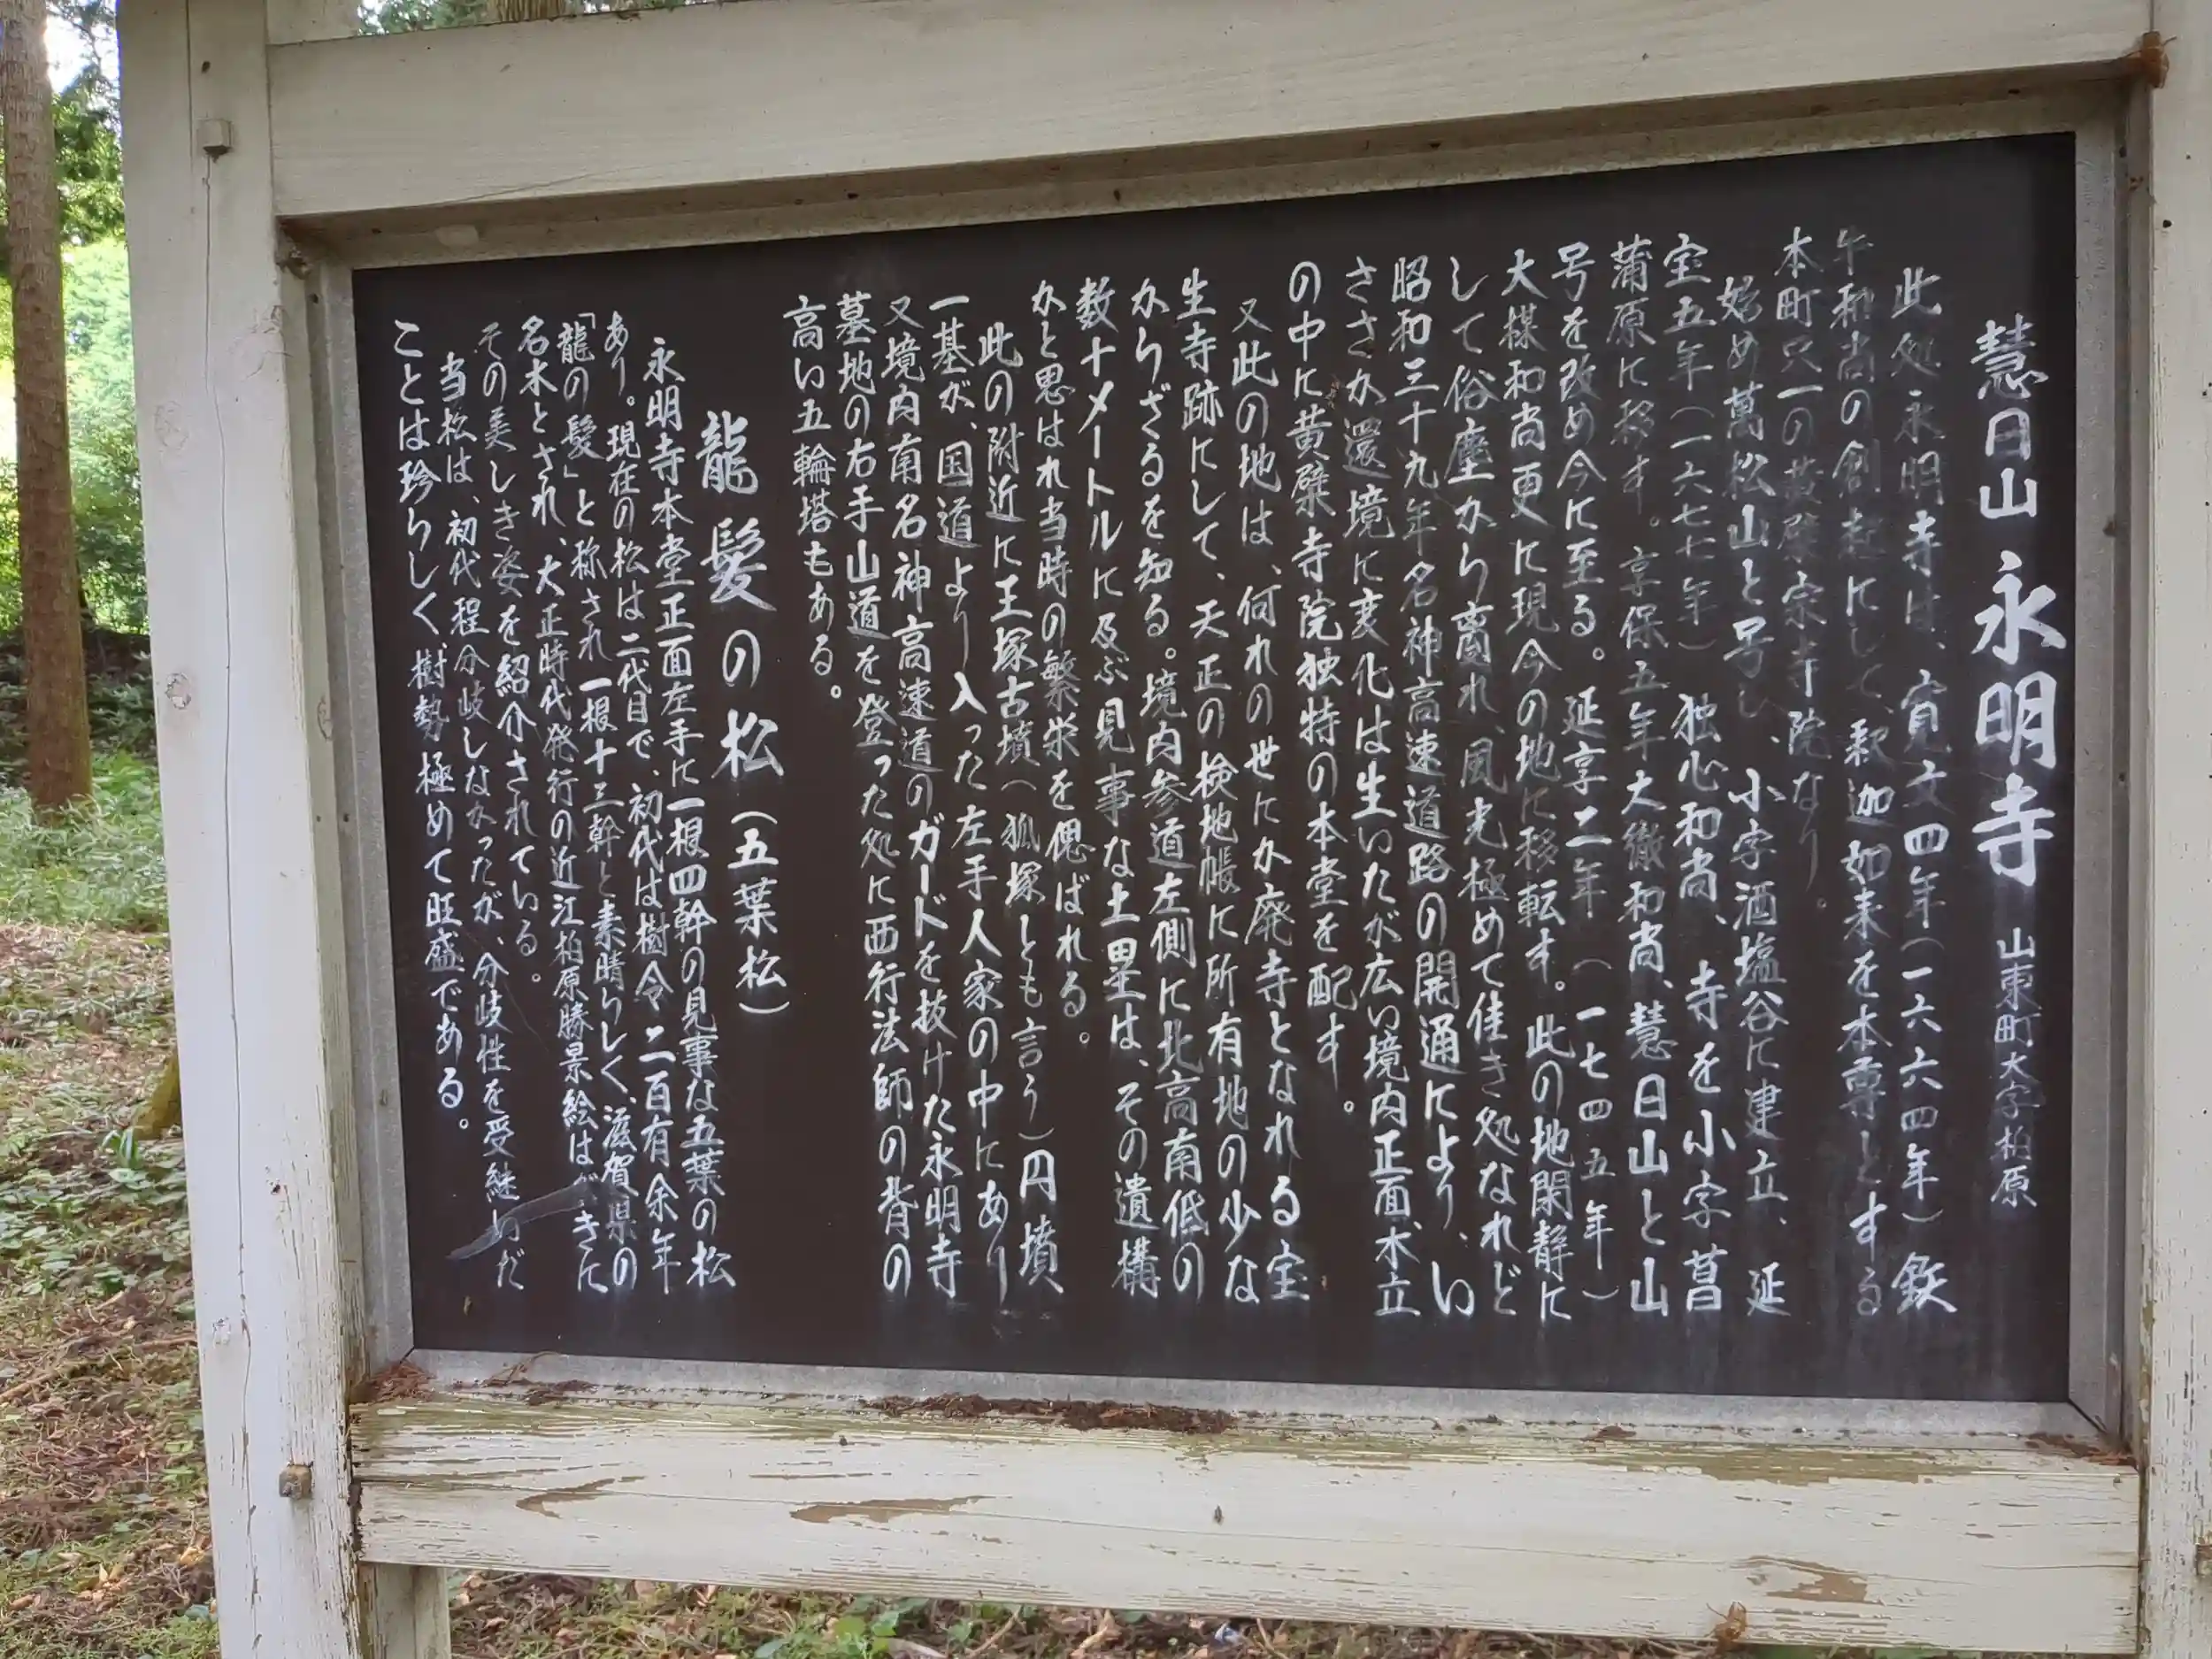 慧日山 永明寺 山東町大字柏原
此処永明寺は、寛文四年(一六六四年)鉄
牛和尚の創起にして、釈迦如来を本尊とする
本町只一の黄檗宗寺院なり。
始め萬松山と号し、小字酒塩谷に建立、延
宝五年(一六七七年)独心和尚、寺を小字菖
蒲原に移す。享保五年大徹和尚、慧日山と山
号を改め今に至る。延享二年(一七四五年)
大楳和尚更に現今の地に移転す。此の地閑静に
して俗塵から離れ、風光極めて佳き処なれど
昭和三十九年名神高速道路の開通により、い
ささか還境に変化は生いたが広い境内正面、木立
の中に黄檗寺院独特の本堂を配す。
又此の地は、何れの世にか廃寺となれる宝
生寺跡にして、天正の検地帳に所有地の少な
からざるを知る。境内参道左側に北高南低の
数十メートルに及ぶ見事な土塁は、その遺構
かと思はれ当時の繁栄を偲ばれる。
此の附近に王塚古墳(狐塚とも言う)円墳
一基が、国道より入った左手人家の中にあり
又境内南名神高速道のガードを抜けた永明寺
墓地の右手山道を登った処に西行法師の背の
高い五輪塔もある。
龍髪の松(五葉松)
永明寺本堂正面左手に一根四幹の見事な五葉の松
あり。現在の松は二代目で、初代は樹令二百有余年
「龍の髪」と称され一根十三幹と素晴らしく、滋賀県の
名木とされ、大正時代発行の近江柏原勝景絵はがきに
その美しき姿を紹介されている。
当松は、初代程分岐しなかったが、分岐性を受継いだ
ことは珍らしく、樹勢極めて旺盛である。